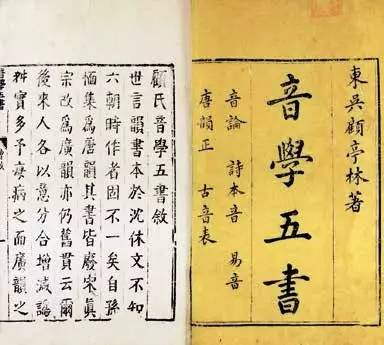 東吳顧亭林著
音學五書
音論 詩本音 易音
唐韻正 古音表
顧氏音學五書敘
世言韻書本於沈休文不知
六朝時作者固不一矣自孫
愐集為唐韻其書皆廢宋眞
宗改為廣韻亦仍舊貫云爾
後來人各以意分合增減譌
舛實多予疾病之而廣韻之